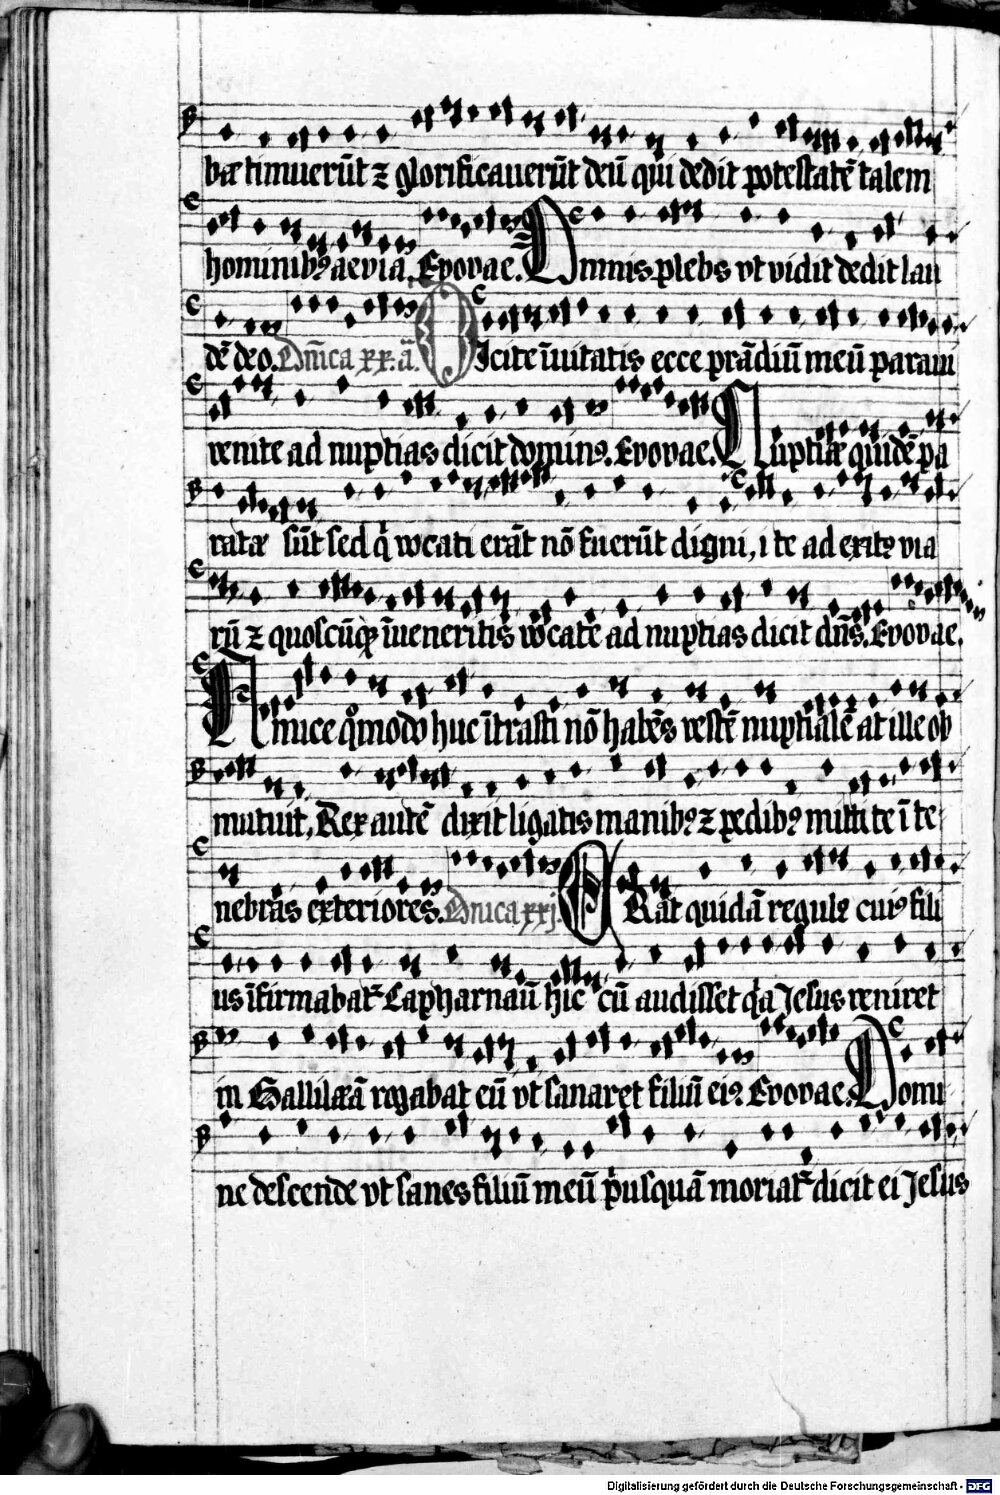 bæ timuerūt ⁊ glorificauerūt deū qui dedit potestatē talem
hominibꝰ aeuia. Euouae. Omnis plebs vt vidit dedit lau
dē deo. Dn̄ica xx. a. Dicite īuitatis ecce prādiū meū paraui
venite ad nuptias dicit dominꝰ. Euouae. Nuptiæ quidē pa
ratæ sūt sed q̇ vocati erāt nō fuerūt digni, i te ad exitꝰ via
rū ⁊ quoscūqꝫ īueneritis vocate ad nuptias dicit dn̄s. Euouae.
Amice qͦmodo huc ītrasti nō habēs vestē nuptialē at ille ob
mutuit, Rex autē dixit ligatis manibꝰ ⁊ pedibꝰ mitti te ī te
nebras exteriores. Dnica xxj. ERat quidā regulꝰ cuiꝰ fili
us īfirmabat᷑ Capharnaū hic cū audisset qa Jesus veniret
in Gallilæā rogabat eū vt sanaret filiū eiꝰ Euouae. Domi
ne descende vt sanes filiū meū p̓usquā moriat᷑ dicit ei Jesus
Digitalisierung gefördert durch die Deutsche Forschungsgemeinschaft - DFG